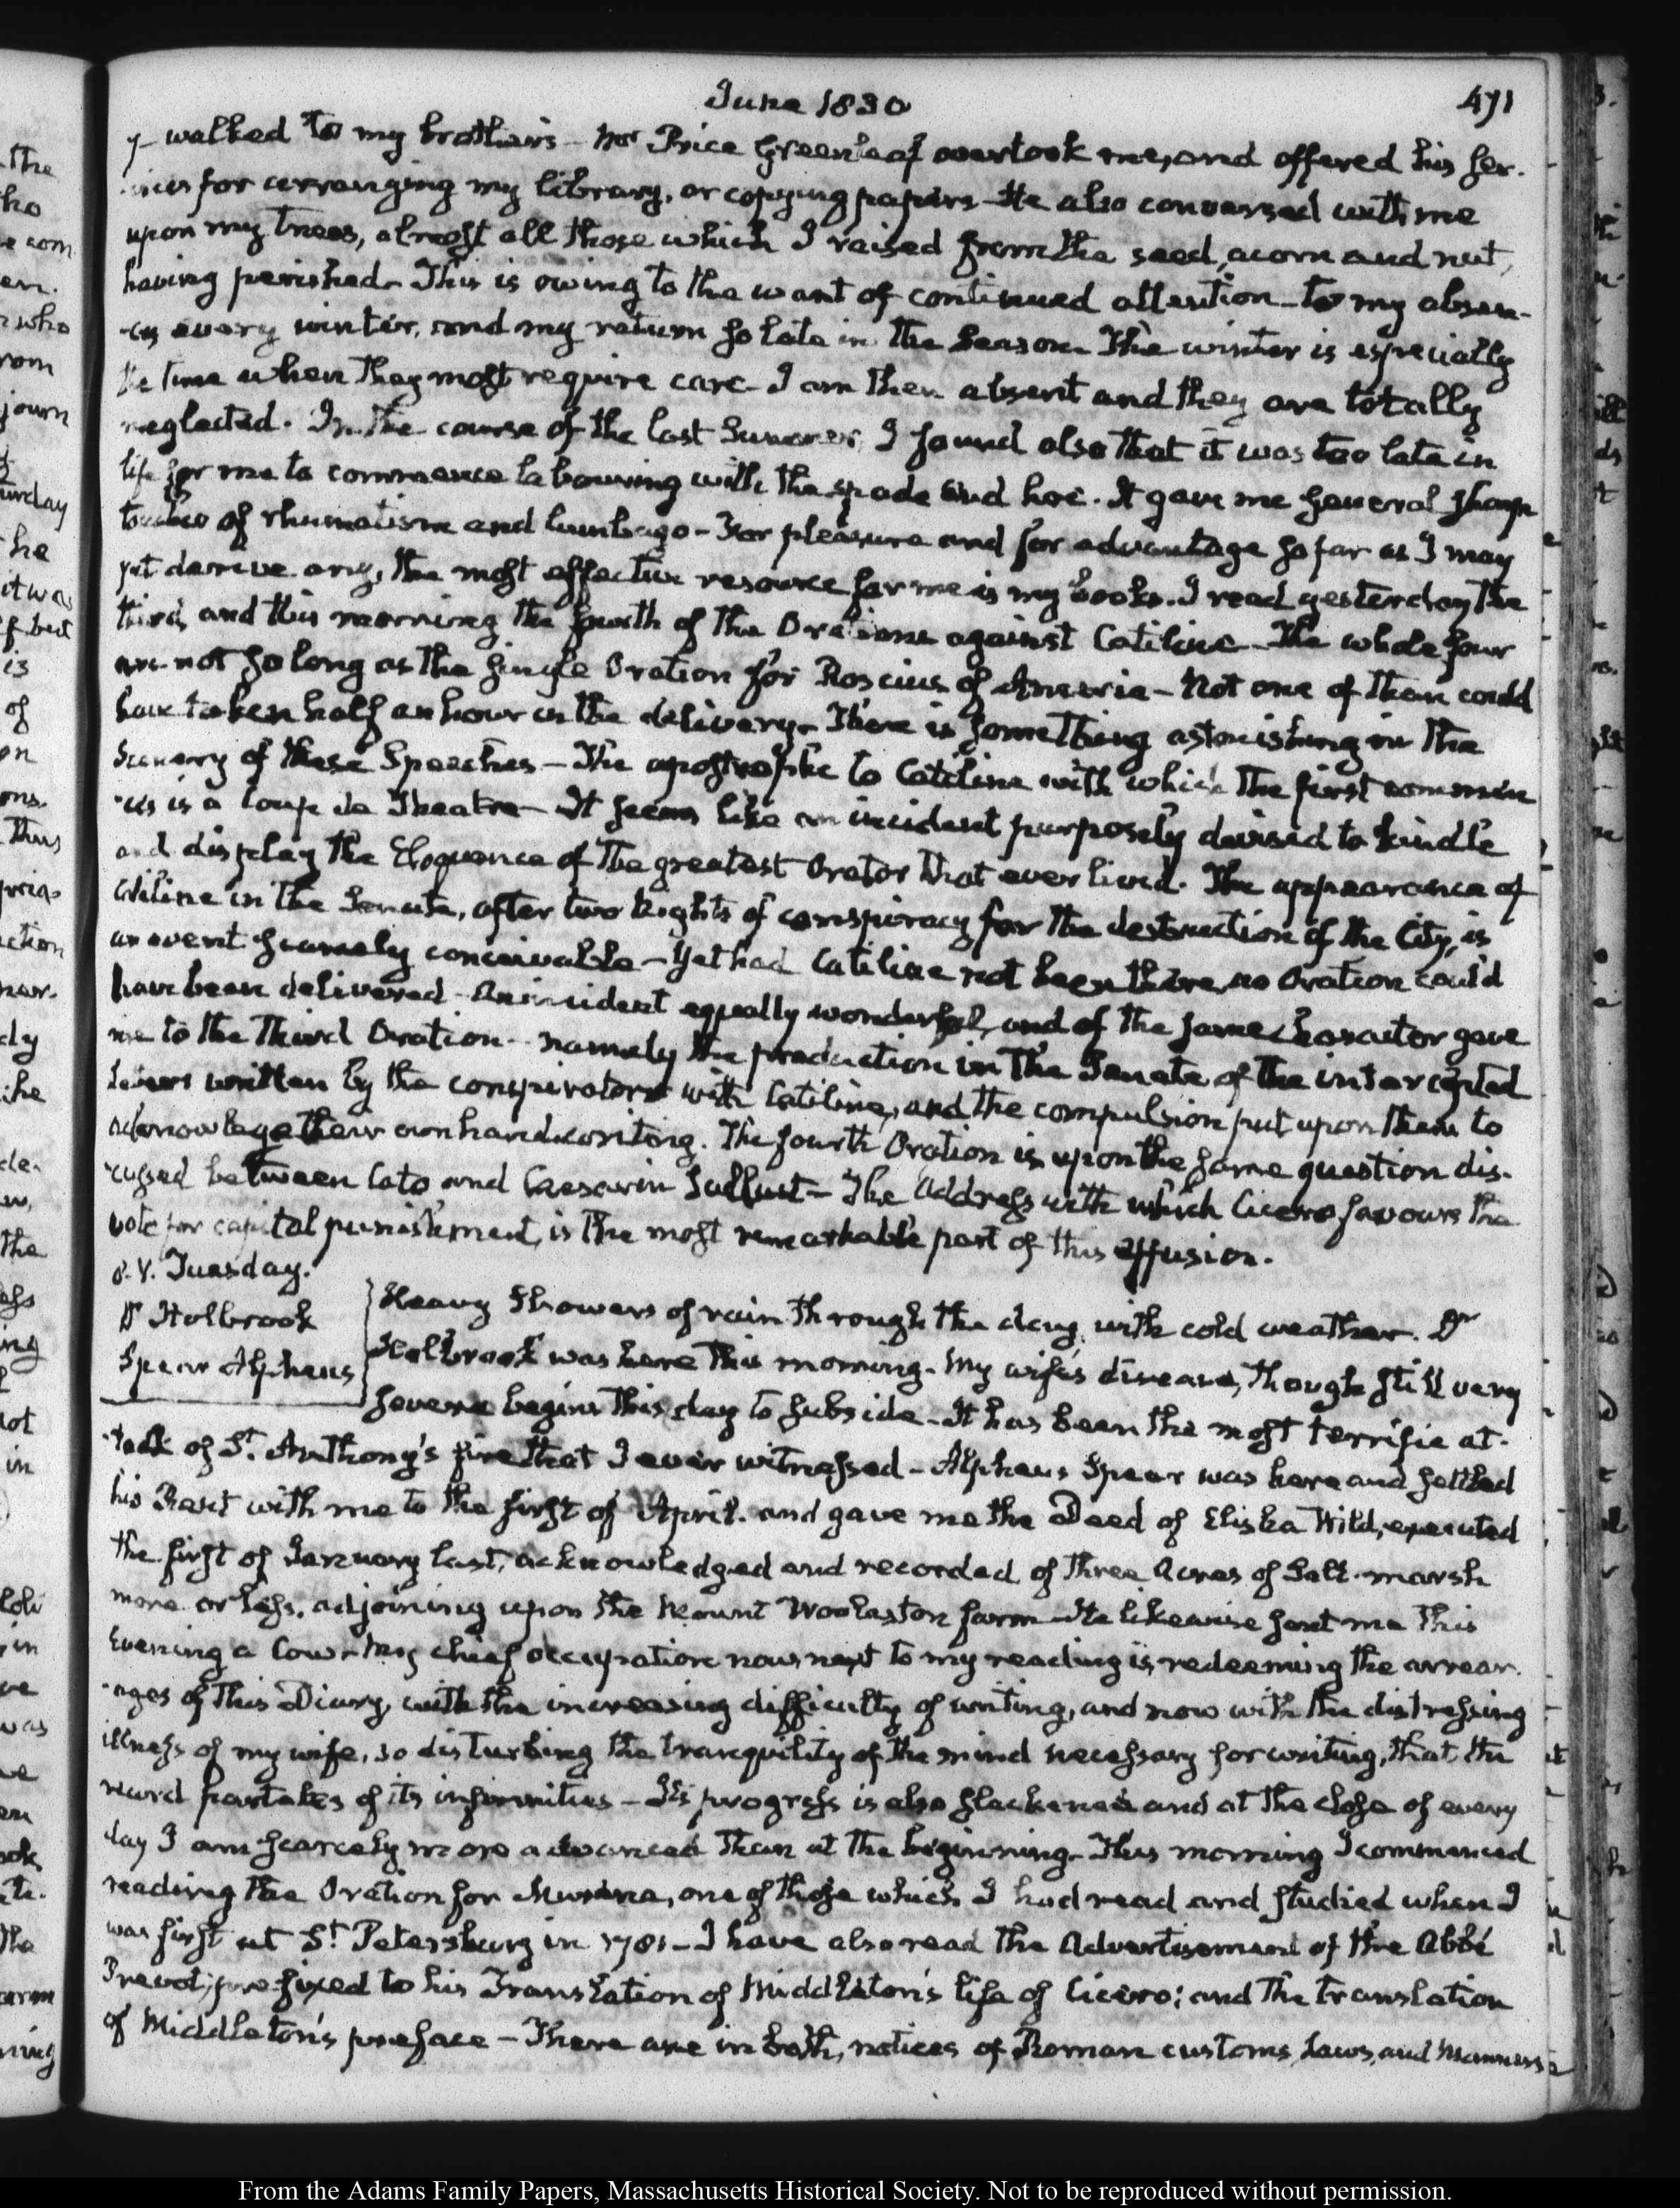 June 1830
471
I walked to my brother's - Mr Price Greenleaf overtook me, and offered his ser-
vices for arranging my library, or copying papers - He also conversed with me
upon my trees, almost all those which I raised from the seed, acorn and nut,
having perished - This is owing to the want of continued attention - to my absen-
ces every winter, and my return so late in the Season. The winter is especially
the time when they most require care - I am then absent and they are totally
neglected. In the course of the last Summer, I found also that it was too late in
life for me to commence labouring with the spade and hoe. It gave me several sharp
touches of rhumatism and lumbago - For pleasure and for advantage so far as I may
yet derrive any, the most effective resource for me is my books. I read yesterday the
third, and this morning the fourth of the Orations against Catiline - The whole four
are not so long as the single Oration for Roscius of Ameria - Not one of them could
have taken half an hour in the delivery - There is something astonishing in the
Scenery of these Speeches - The apostrophe to Catiline with which the first commen
ces is a Coup de Theatre - It seems like an incident purposely devised to kindle
and display the Eloquence of the greatest Orator that ever lived. The appearance of
Catiline in the Senate, after two Nights of conspiracy for the destruction of the City, is
an event scarcely conceivable - Yet had Catiline not been there, no Oration could
have been delivered - An incident equally wonderful, and of the same character gave
rise to the Third Oration - namely the production in the Senate of the intercepted
Letters written by the conspirators with Catiline, and the compulsion put upon them to
acknowlege their own handwriting. The fourth Oration is upon the same question dis-
cussed between Cato and Caesar in Sallust - The Address with which Cicero favours the
vote for capital punishment, is the most remarkable part of this effusion.
8. V. Tuesday.
Dr Holbrook
Spear Alpheus
Heavy Showers of rain through the day, with cold weather. Dr
Holbrook was here this morning - My wife's disease, though still very
severe begins this day to subside - It has been the most terrific at-
tack of St. Anthony's fire that I ever witnessed - Alpheus Spear was here and settled
his Rent with me to the first of April. and gave me the Deed of Elisha Wild, executed
the first of January last, acknowledged and recorded of three Acres of Salt-marsh
more or less, adjoining upon the Mount Woolaston farm - He likewise sent me this
Evening a Cow - My chief occupation now next to my reading is redeeming the arrear-
ages of this Diary, with the increasing difficulty of writing, and now with the distressing
illness of my wife, so disturbing the tranquility of the mind necessary for writing, that the
record partakes of its infirmities - Its progress is also slackened and at the close of every
day I am scarcely more advanced than at the beginning - This morning I commenced
reading the Oration for Murena, one of those which I had read and studied when I
was first at St. Petersburg in 1781 - I have also read the Advertisement of the Abbé
Prevot, prefixed to his Translation of Middleton's life of Cicero; and the translation
of Middleton's preface - There are in both, notices of Roman customs, laws, and manners
From the Adams Family Papers, Massachusetts Historical Society. Not to be reproduced without permission.